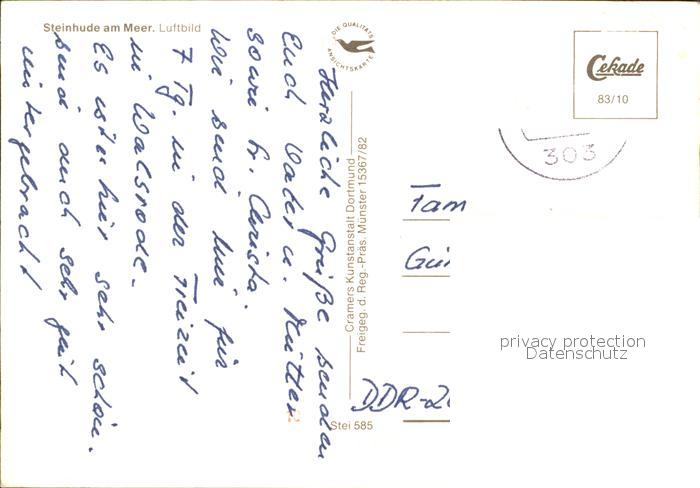 Steinhude am Meer. Luftbild
DIE QUALITÄTS
ANSICHTSKARTE
Cekade
83/10
303
Herzliche Grüße senden
Euch Vater u. Mutter
sowie Fr. Christa.
Wir sind nun für
7 Tg. in der Freizeit
in Walsrode.
Es ist hier sehr schön.
sind auch sehr gut
untergebracht
Cramers Kunstanstalt Dortmund
Freigeg. d. Reg.-Präs. Münster 15367/82
Stei 585
Fam
Gün
DDR-2
privacy protection
Datenschutz